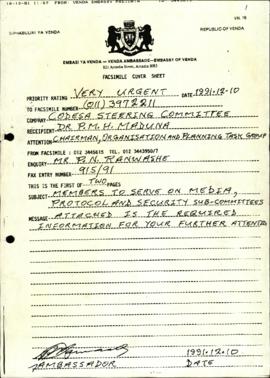 VN 16
REPUBLIC OF VENDA
EMBASI YA VENDA — VENDA AMBASSADE — EMBASSY OF VENDA
FACSIMILE COVER SHEET
PRIORITY RATING VERY URGENT DATE 1991.12.10
TO FACSIMILE NUMBER (011) 3972211
COMPANY CODESA STEERING COMMITTEE
RECEIPIENT DR P.M.H. MADUNA
ATTENTION CHAIRMAN, ORGANISATION AND PLANNING TASK GROUP
FROM FACSIMILE : TEL. 012 3445615 TEL. 012 3443950/7
ENQUIRY MR P.N. RANWASHE
FAX ENTRY NUMBER 915/91
THIS IS THE FIRST OF TWO PAGES
SUBJECT MEMBERS TO SERVE ON MEDIA,
PROTOCOL AND SECURITY SUB-COMMITTEES
MESSAGE ATTACHED IS THE REQUIRED
INFORMATION FOR YOUR FURTHER ATTENTION
1991.12.10
AMBASSADOR DATE